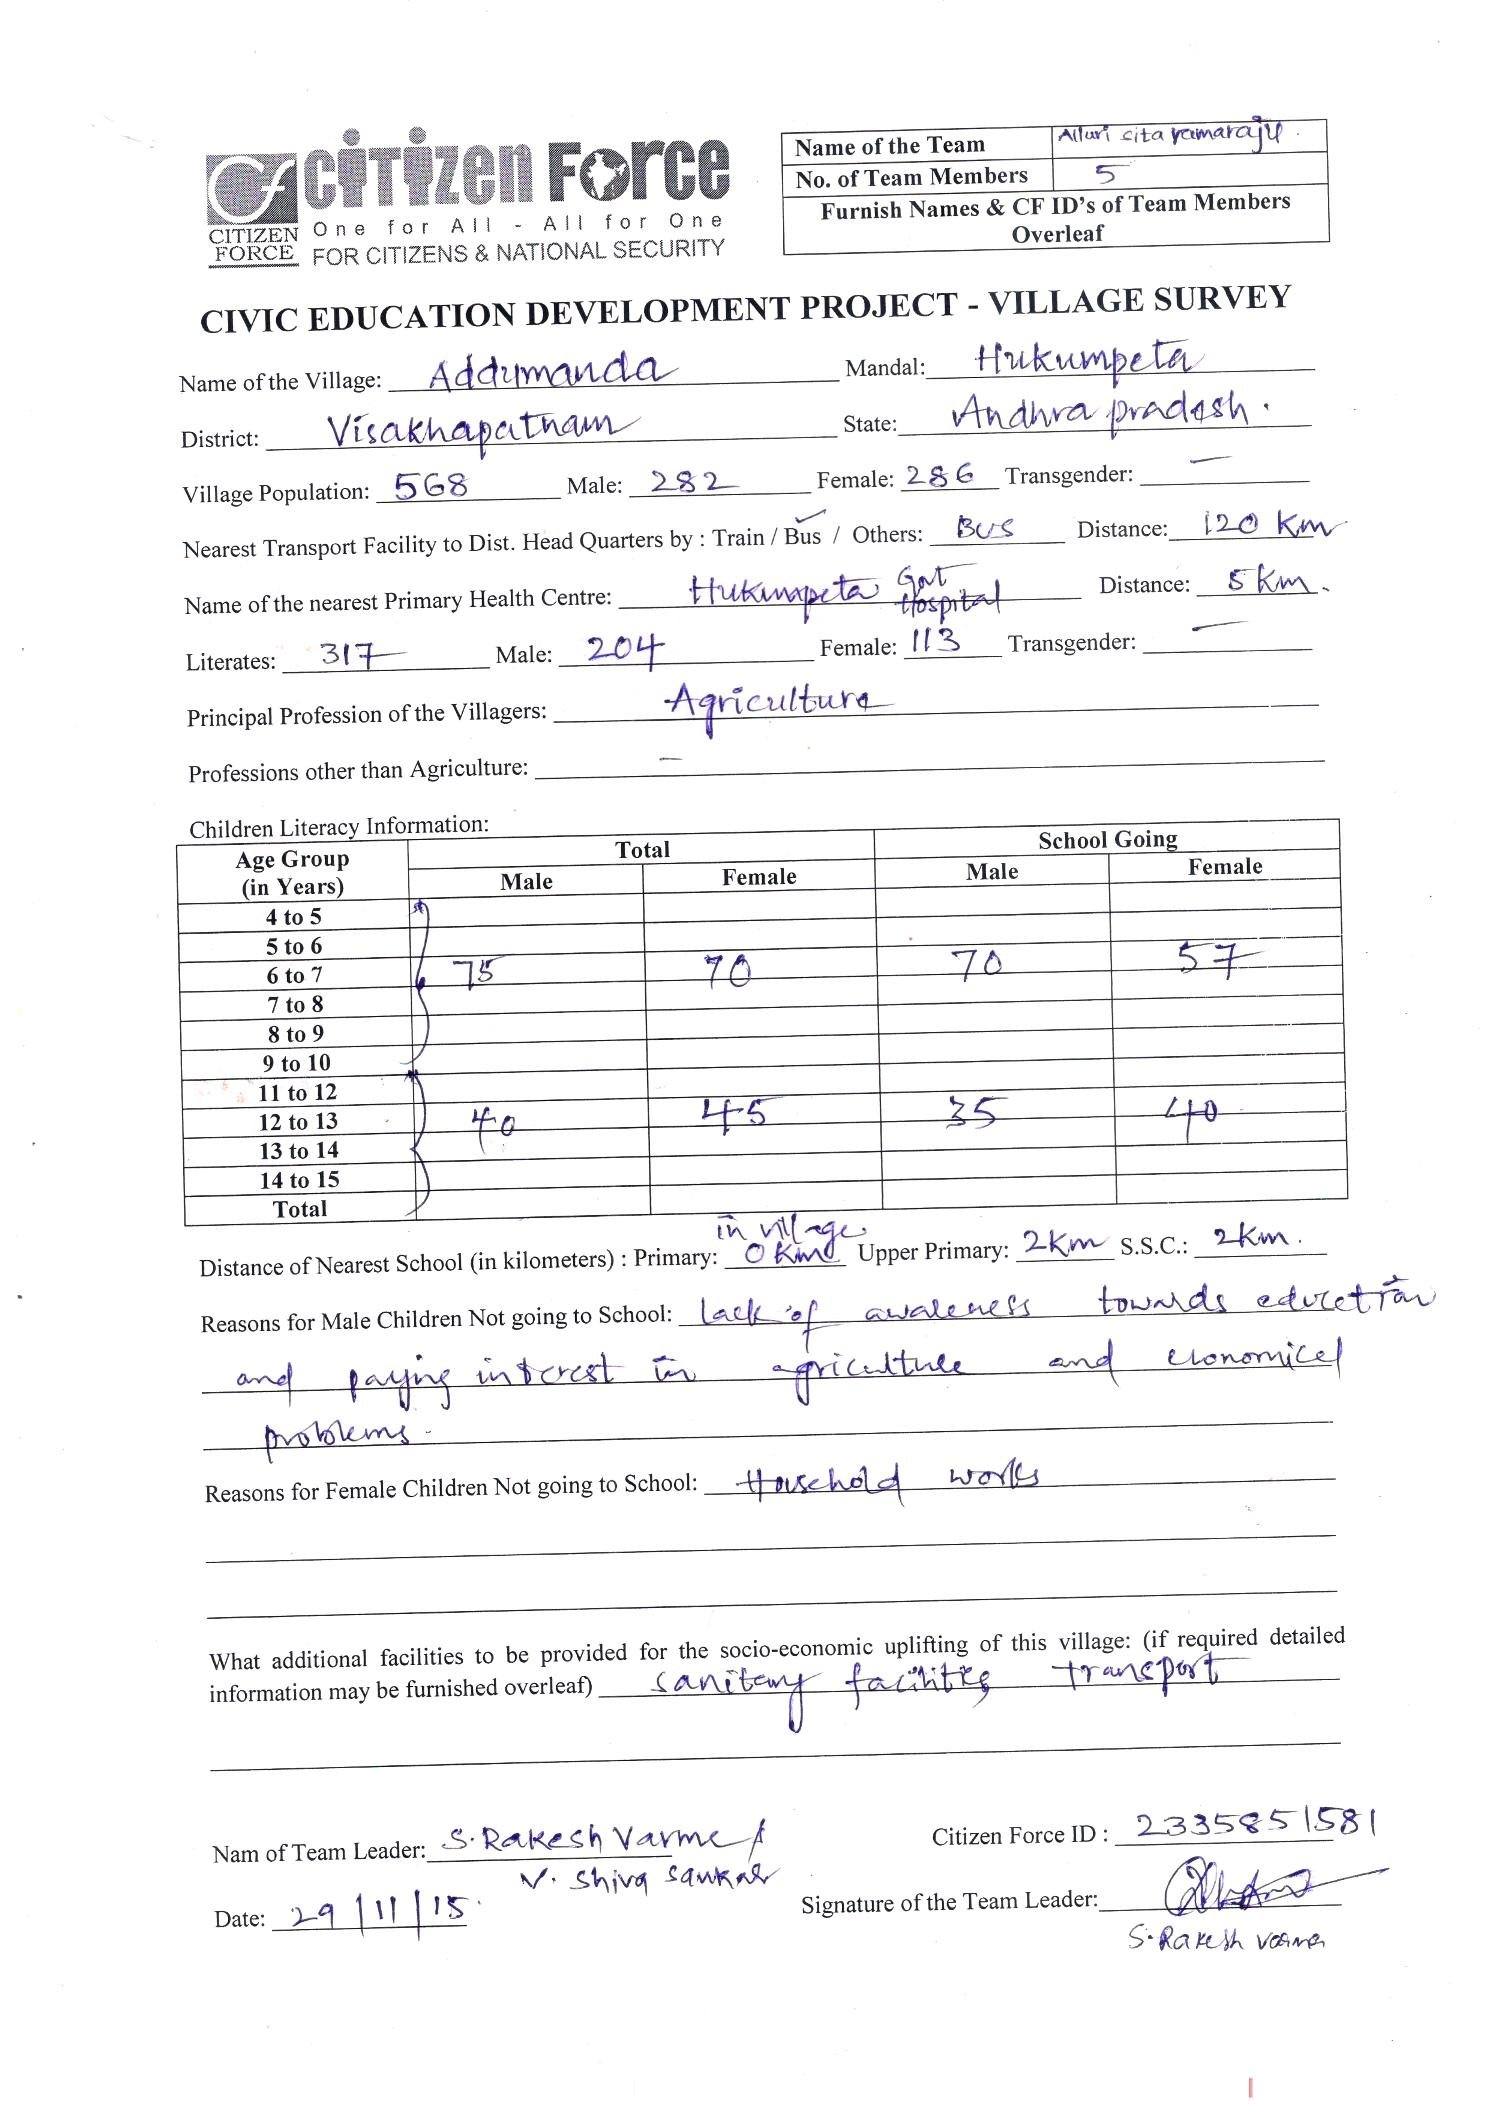 Name of the Team Alluri sita ramaraju.
CITIZEN FORCE
No. of Team Members 5
One for All - All for One
Furnish Names & CF ID's of Team Members
Overleaf
CITIZEN
FORCE
FOR CITIZENS & NATIONAL SECURITY
CIVIC EDUCATION DEVELOPMENT PROJECT - VILLAGE SURVEY
Name of the Village: Addumanda Mandal: Hukumpeta
District: Visakhapatnam State: Andhra pradesh.
Village Population: 568 Male: 282 Female: 286 Transgender: —
Nearest Transport Facility to Dist. Head Quarters by : Train / Bus / Others: Bus Distance: 120 Km
Name of the nearest Primary Health Centre: Hukumpeta Govt Hospital Distance: 5 Km.
Literates: 317 Male: 204 Female: 113 Transgender: —
Principal Profession of the Villagers: Agriculture
Professions other than Agriculture: —
Children Literacy Information:
Age Group (in Years) Total School Going
Male Female Male Female
4 to 5
5 to 6
6 to 7 75 70 70 57
7 to 8
8 to 9
9 to 10
11 to 12
12 to 13 40 45 35 40
13 to 14
14 to 15
Total
in village
Distance of Nearest School (in kilometers) : Primary: 0 Km Upper Primary: 2 Km S.S.C.: 2 Km.
Reasons for Male Children Not going to School: lack of awareness towards education
and paying interest in agriculture and economical
problems.
Reasons for Female Children Not going to School: Household works
What additional facilities to be provided for the socio-economic uplifting of this village: (if required detailed
information may be furnished overleaf) sanitary facilities transport
Nam of Team Leader: S. Rakesh Varma / Citizen Force ID : 2335851581
V. Shiva Sankar
Date: 29/11/15. Signature of the Team Leader:
S. Rakesh Varma